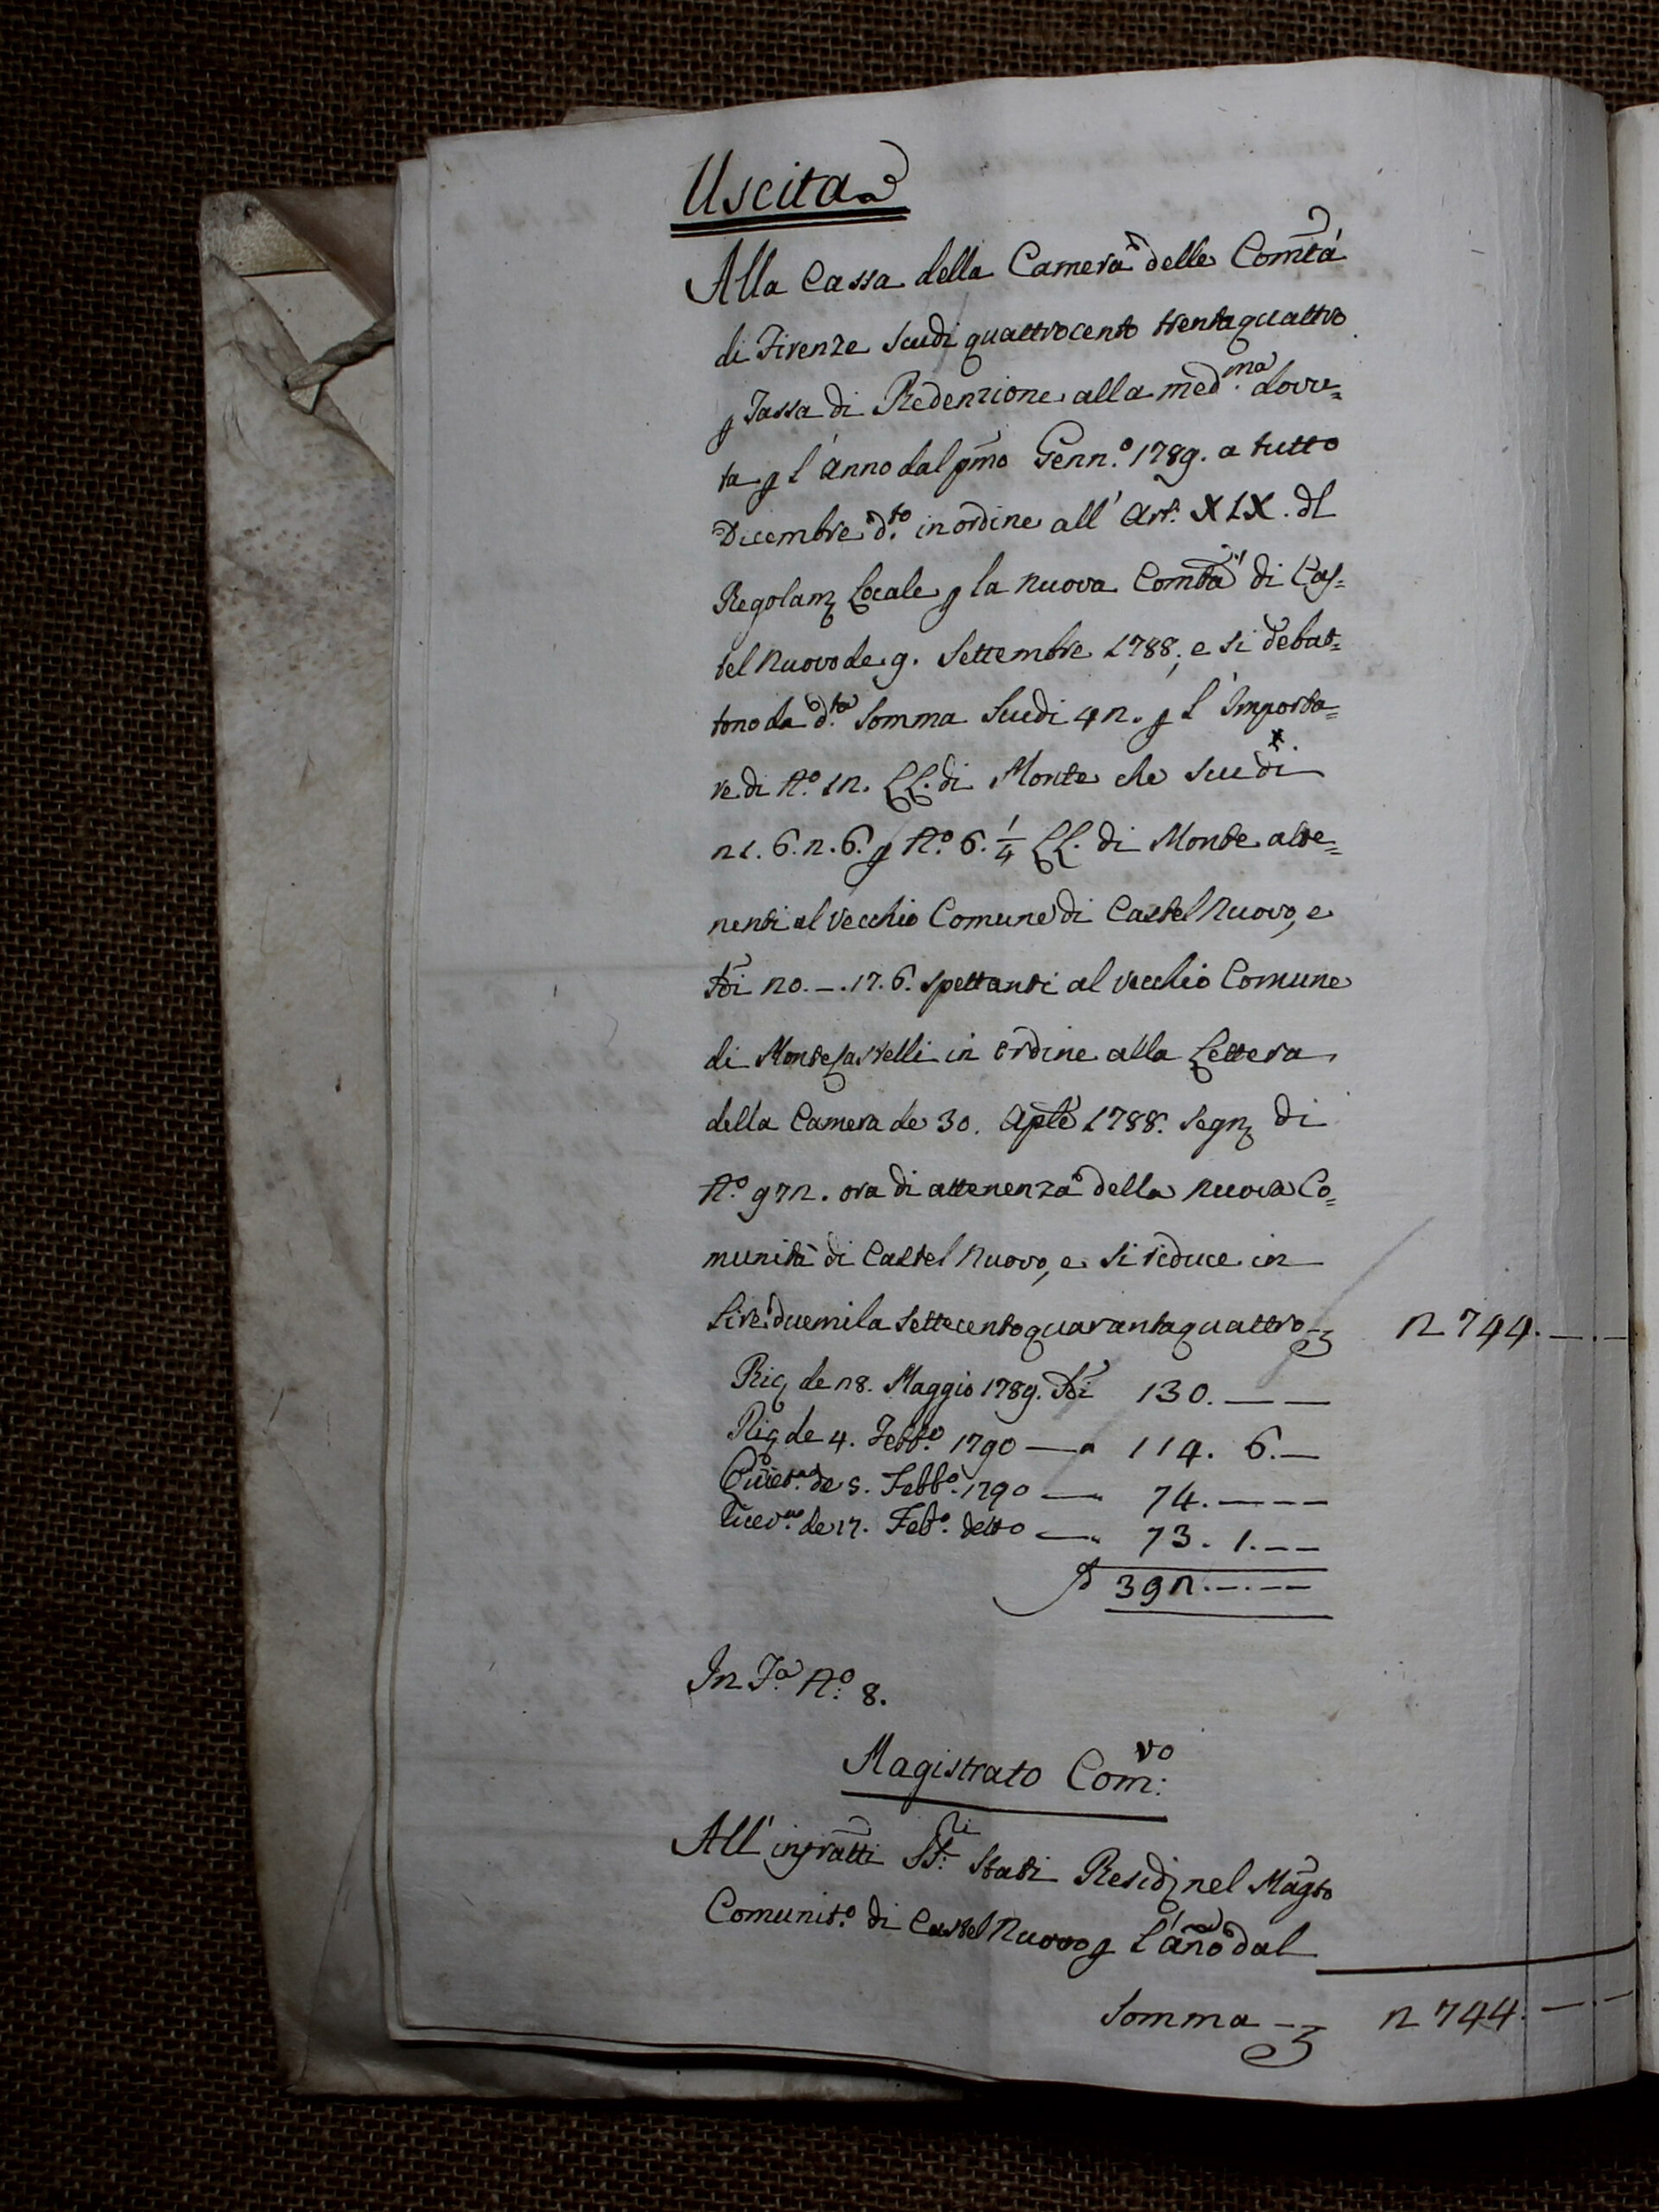 Uscita
Alla Cassa della Camera delle Comtà
di Firenze Scudi quattrocento trentaquattro
p Tassa di Redenzione alla med.ma dovu=
ta p l'anno dal pmo Genn.o 1789. a tutto
Dicembre d.to in ordine all' Art. XIX. dl
Regolam Locale p la nuova Comtà di Cas=
tel Nuovo de 9. Settembre 1788; e si debat=
tono da d.ta Somma Scudi 42. p l' Importa=
re di N.o 12. LL. di Monte che Scudi
21. 6. 2. 6. p N.o 6. 1/4 LL. di Monte atte=
nenti al Vecchio Comune di Castel Nuovo, e
sdi 20. -. 17. 6. spettanti al vecchio Comune
di MonteCastelli in ordine alla Lettera
della Camera de 30. Aple 1788. Segn di
N.o 972. ora di attenenza della nuova Co=
munità di Castel Nuovo, e si riduce in
Lire duemila settecentoquarantaquattro 2744. -.-
Ric de 28. Maggio 1789. Sdi 130. - -
Ric de 4. Febb.o 1790 - 114. 6. -
Quiet.a de 5. Febb.o 1790 - 74. - -
de 17. Feb.o detto - 73. 1. - -
392. -. - -
In F.a N.o 8.
Magistrato Com:vo
All' infratti SS:ri Stati Resid nel Magto
Comunit.o di Castel Nuovo p l'ano dal
Somma - 2744. -.-